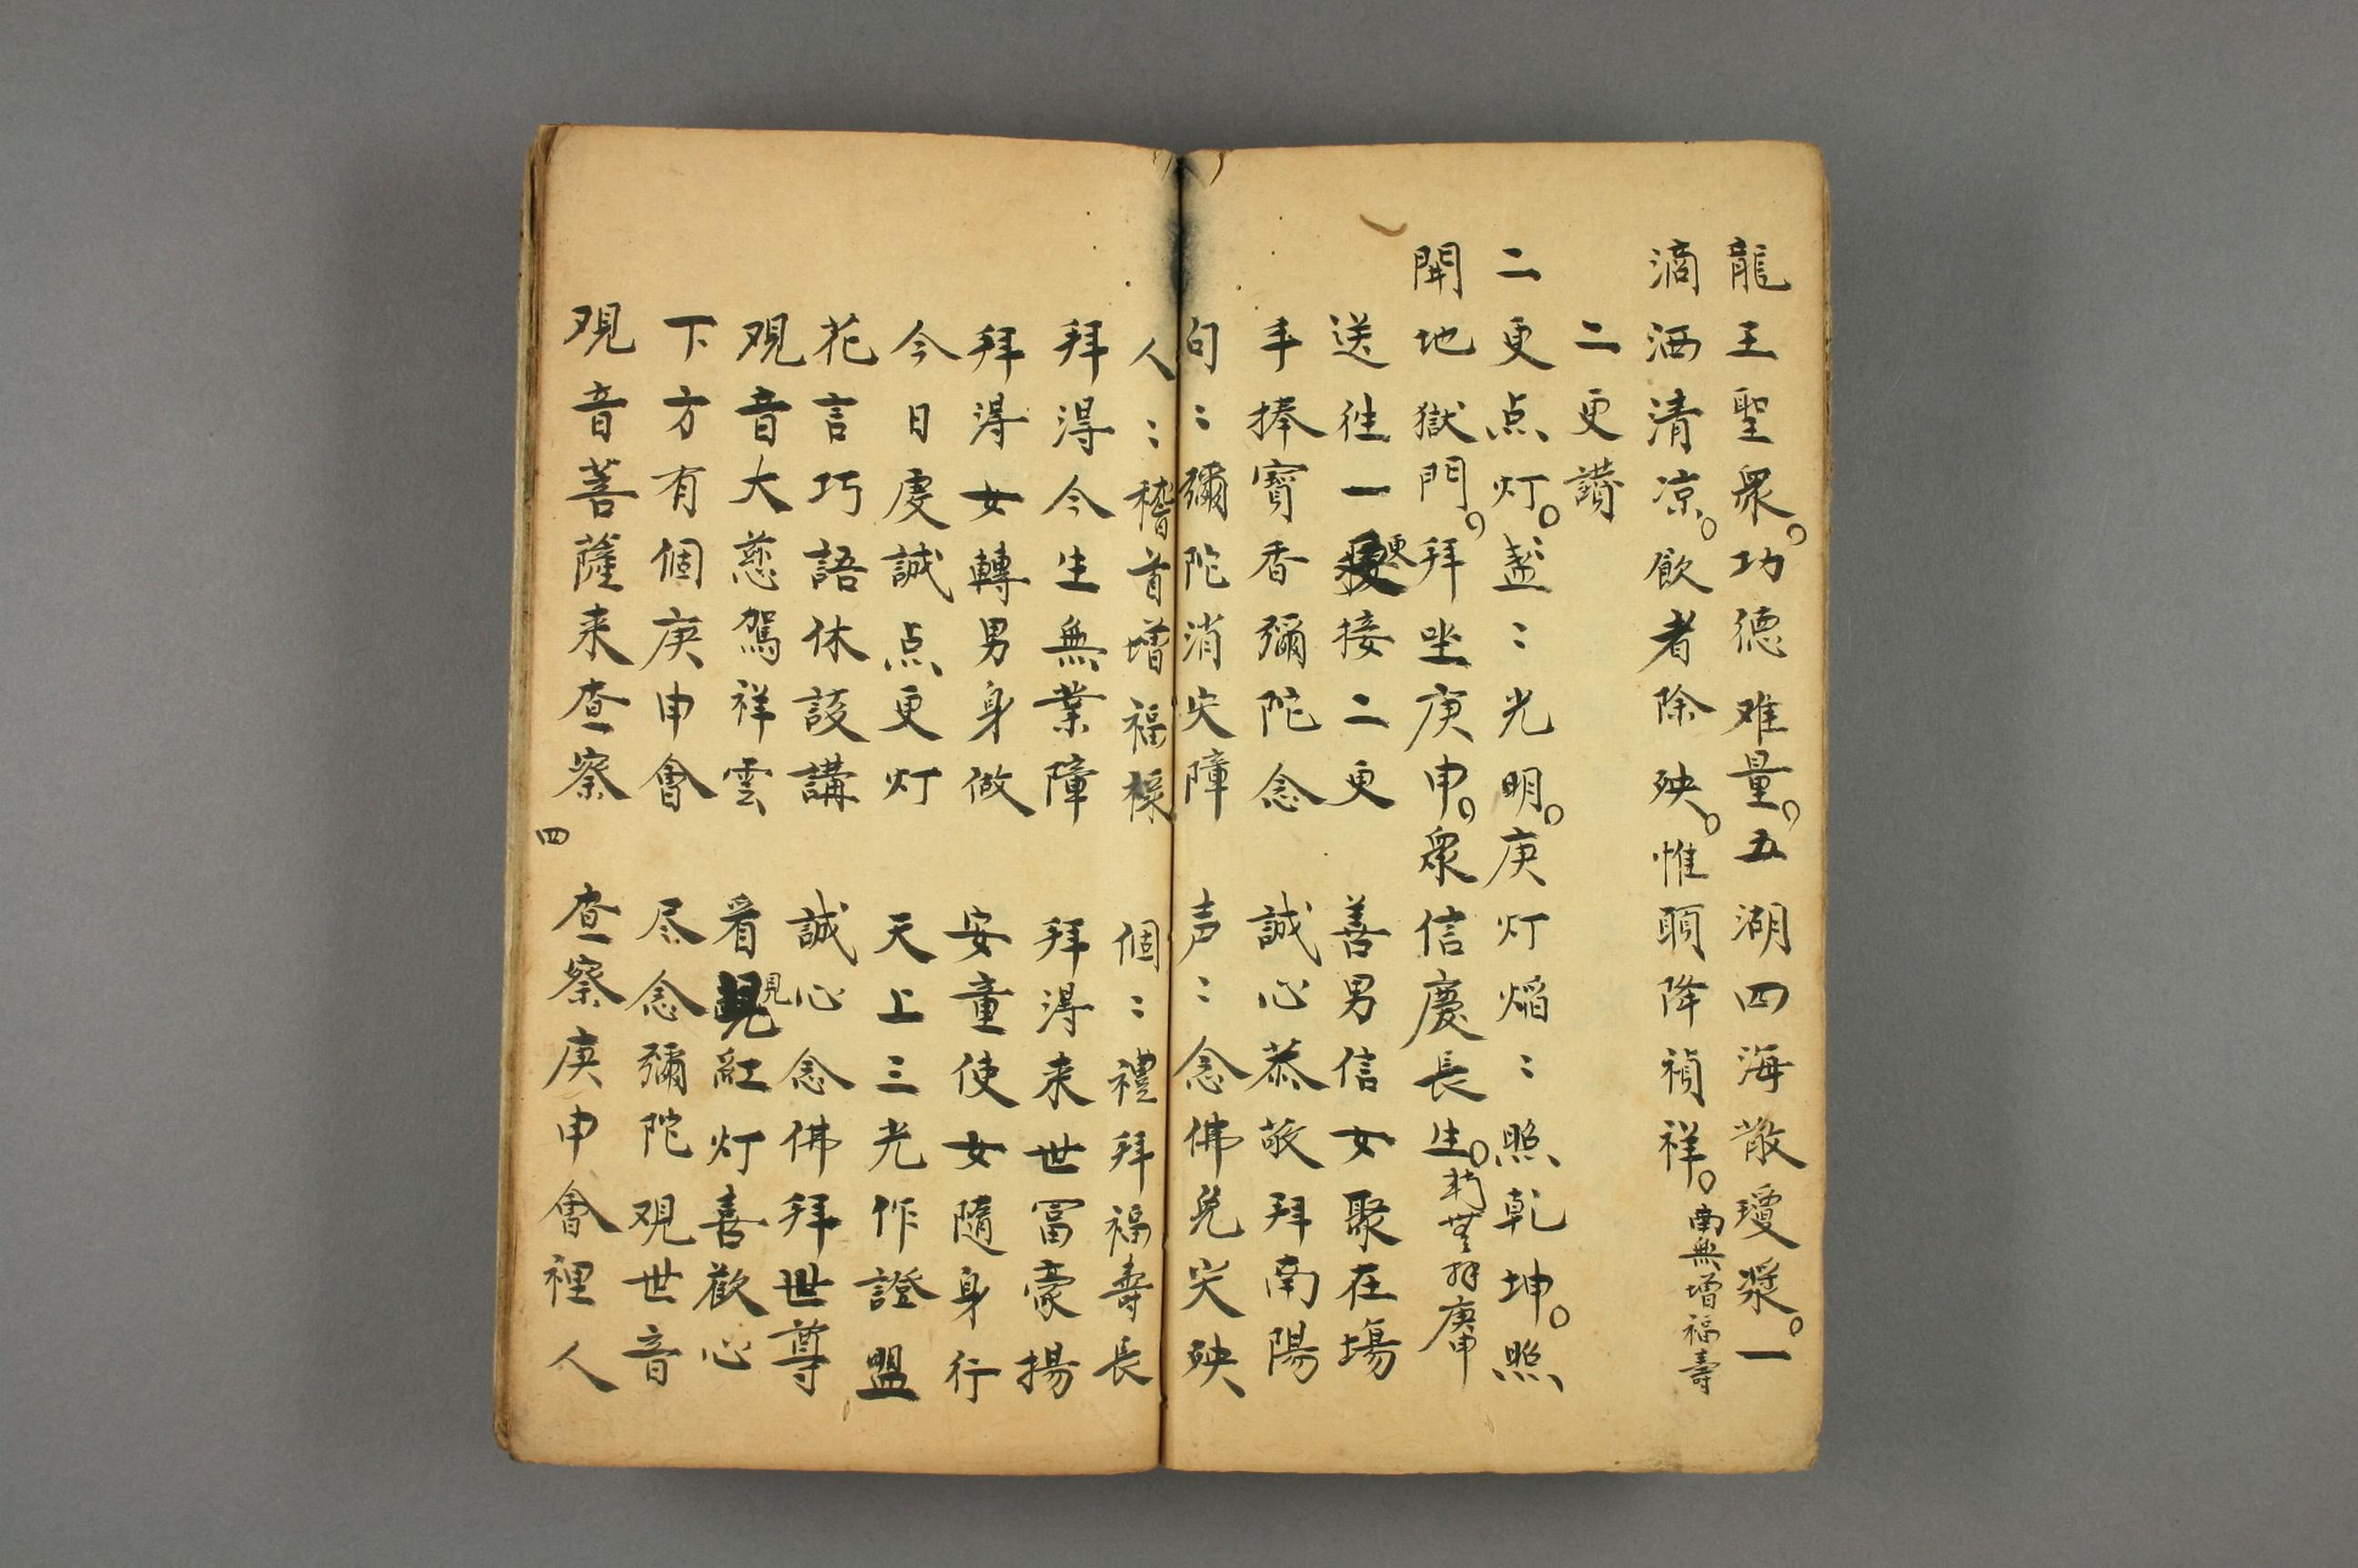 龍王聖衆。功德难量。五湖四海散瓊漿。一
滴洒清凉。飲者除殃。惟願降禎祥。南無增福壽
二更讚
二更点灯。盏〻光明。庚灯焰〻照乾坤。照
開地獄門。拜坐庚申。衆信慶長生。拜庚申
送徃一更接二更　善男信女聚在塲
手捧寳香彌陀念　誠心恭敬拜南陽
句〻彌陀消灾障　声〻念佛免灾殃
人〻稽首增福祿　個〻禮拜福壽長
拜淂今生無業障　拜淂来世冨豪揚
拜淂女轉男身做　安童使女隨身行
今日虔誠点更灯　天上三光作證盟
花言巧語休談講　誠心念佛拜世尊
观音大慈駕祥雲　看見紅灯喜歡心
下方有個庚申會　尽念彌陀观世音
观音菩薩来查察　查察庚申會裡人
四